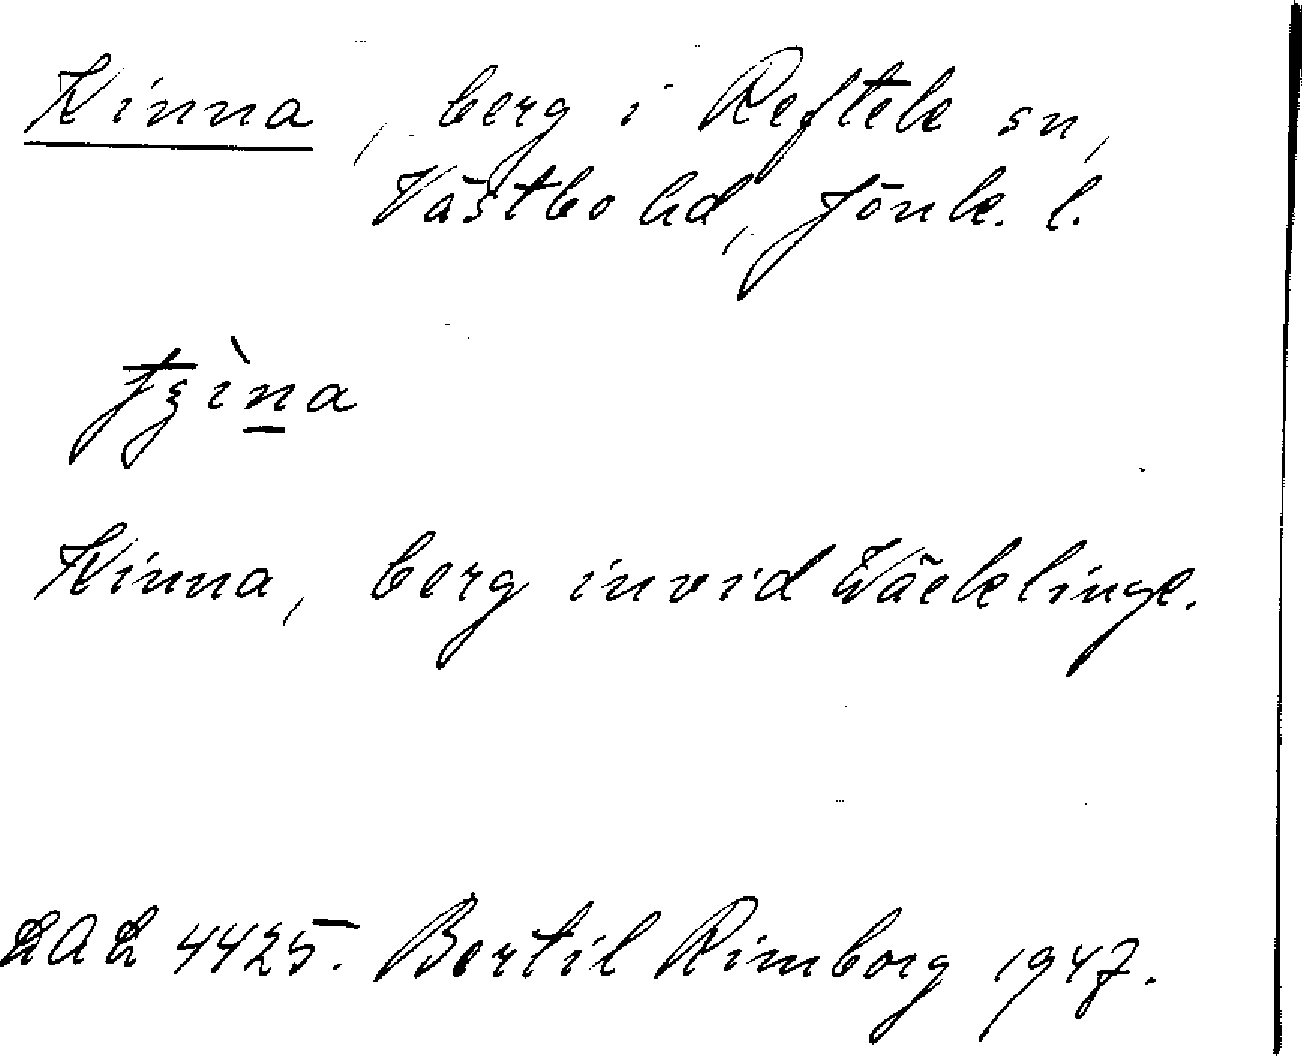 Kinna, berg i Reftele sn,
Västbo hd, Jönk. l.
Kinna, berg invid Väcklinge.
LAL 4425. Bertil Rimborg 1947.